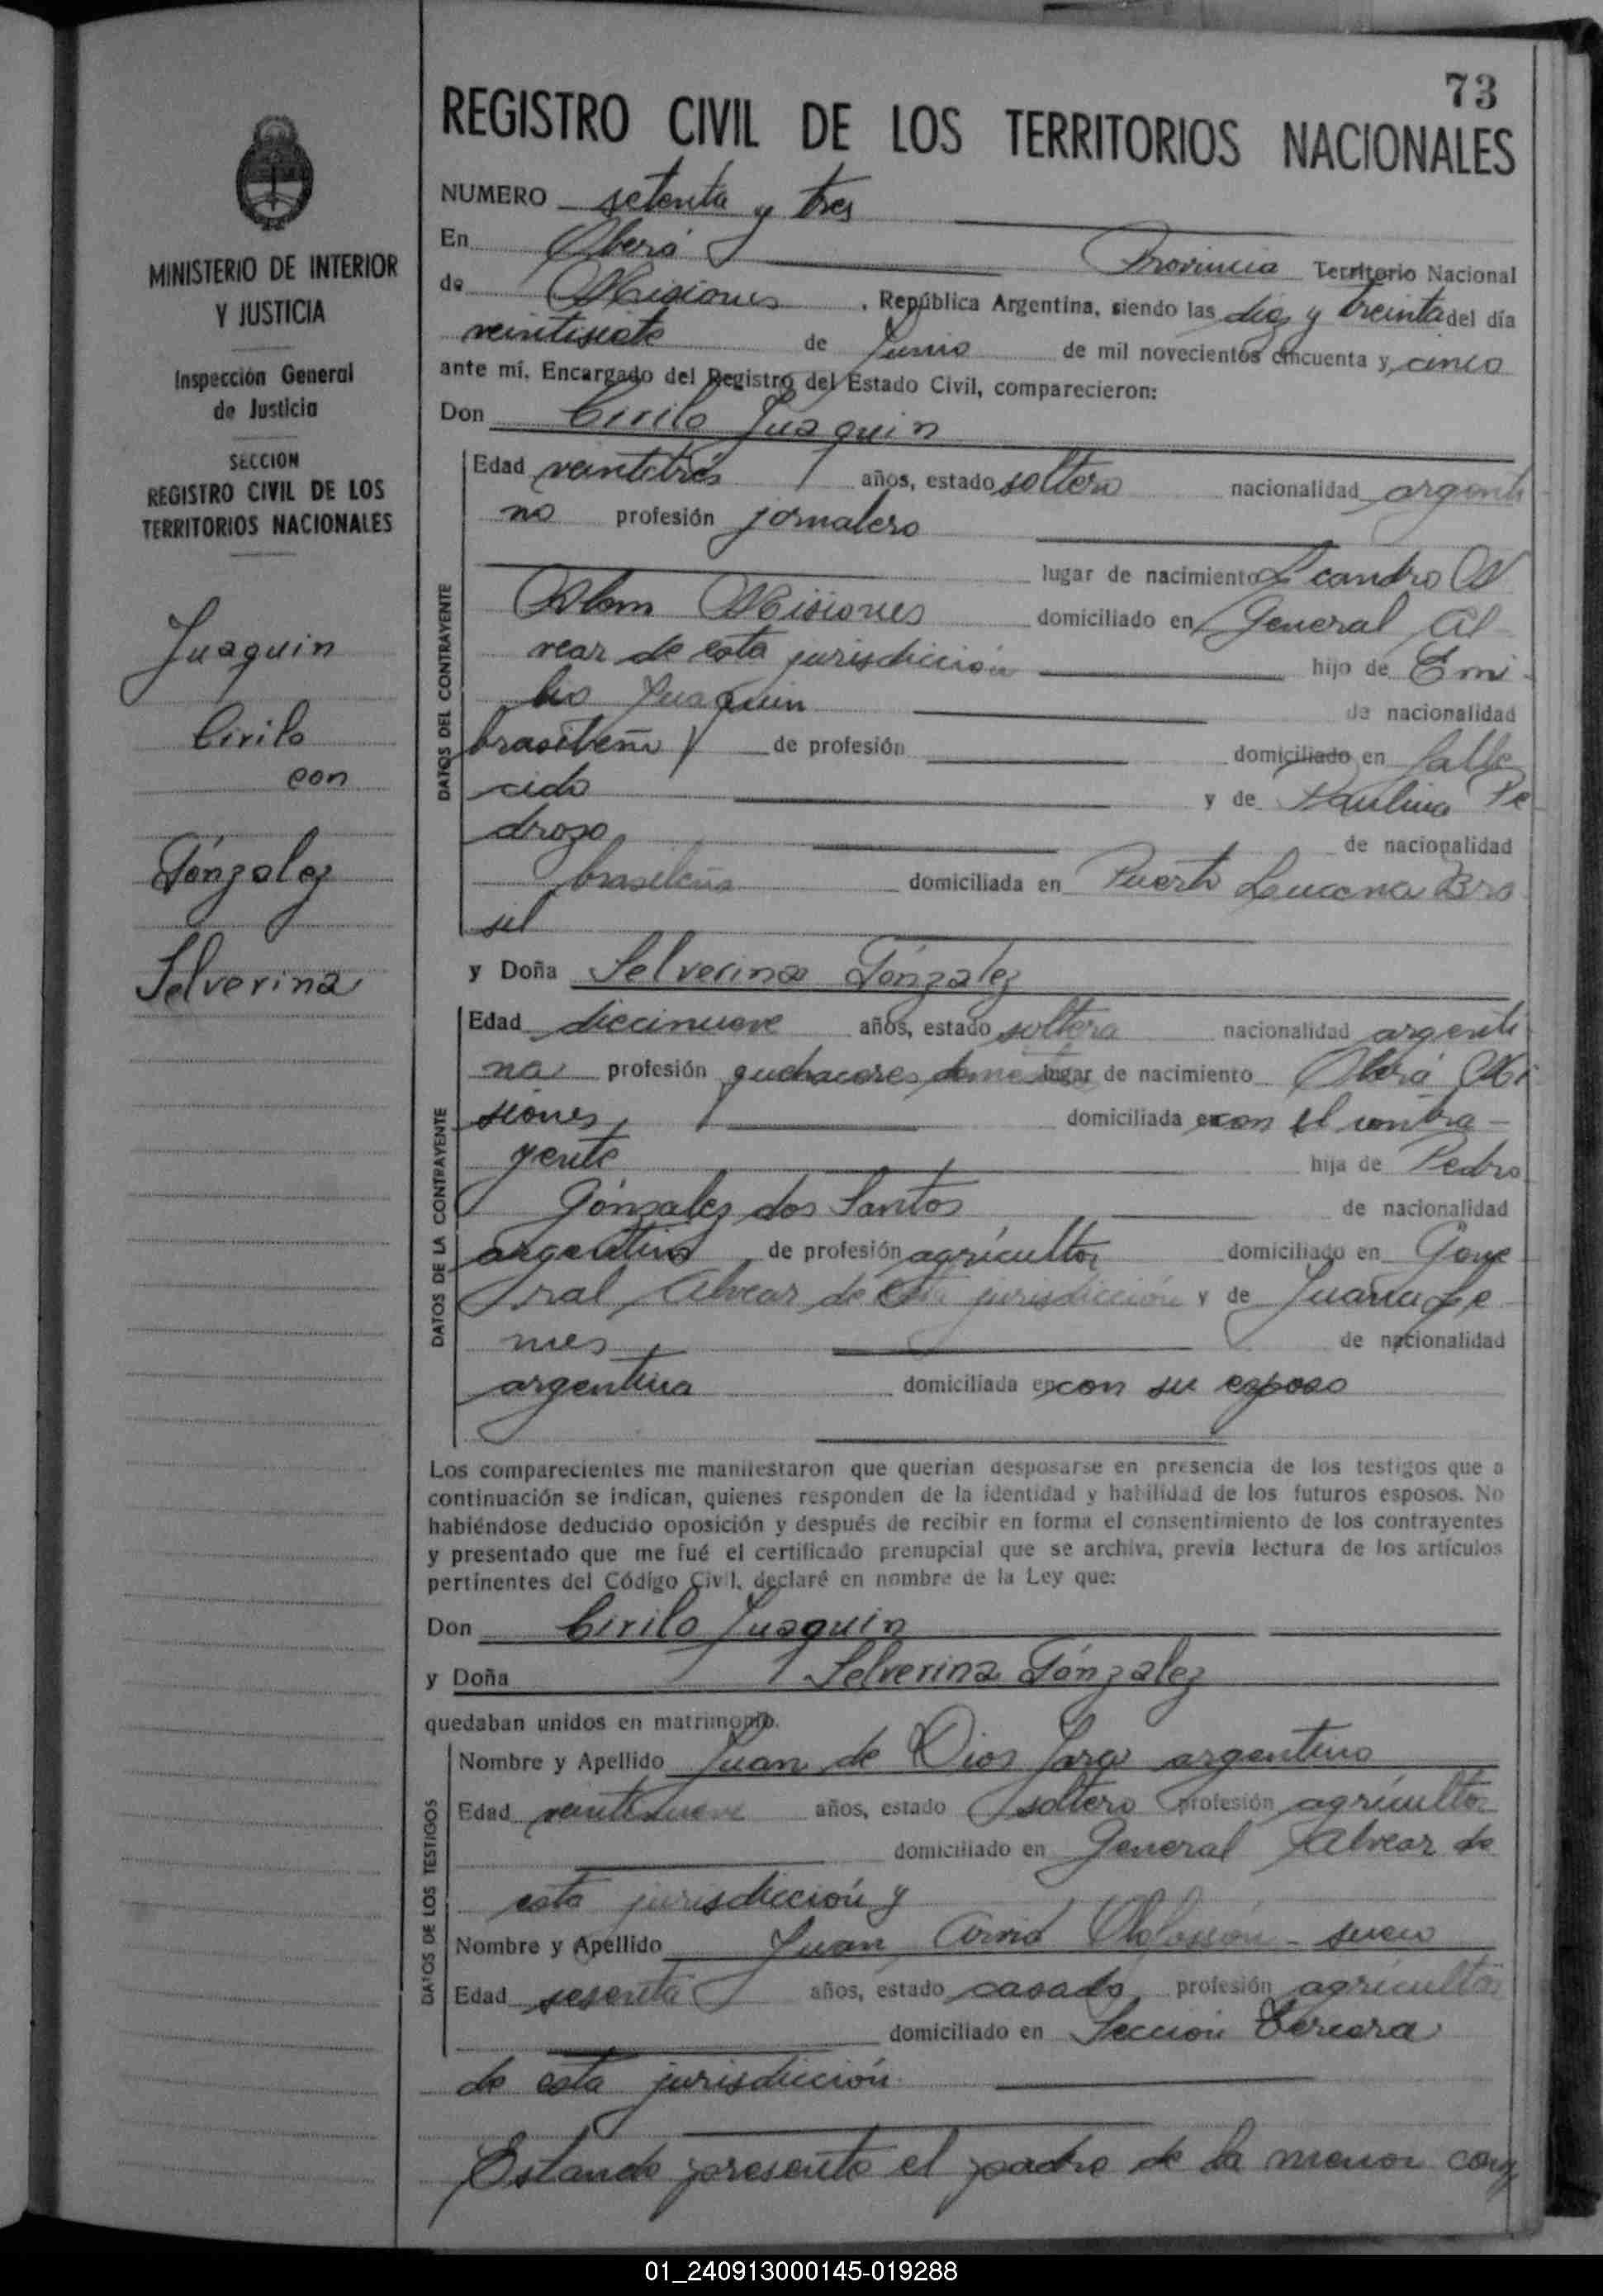 73
REGISTRO CIVIL DE LOS TERRITORIOS NACIONALES
MINISTERIO DE INTERIOR
Y JUSTICIA
Inspección General
de Justicia
SECCION
REGISTRO CIVIL DE LOS
TERRITORIOS NACIONALES
Juaquin
Cirilo
con
Gónzalez
Selverina
NUMERO setenta y tres
En Oberá Provincia Territorio Nacional
de Misiones , República Argentina, siendo las diez y treinta del día
veintisiete de Junio de mil novecientos cincuenta y cinco
ante mí, Encargado del Registro del Estado Civil, comparecieron:
Don Cirilo Juaquin
DATOS DEL CONTRAYENTE
Edad veintitrés años, estado soltero nacionalidad argenti
no profesión jornalero
lugar de nacimiento Leandro N
Alem Misiones domiciliado en General Al
vear de esta jurisdicción hijo de Emi
lio Juaquin de nacionalidad
brasileño de profesión domiciliado en falle
cido y de Paulina Pe
drozo de nacionalidad
brasileña domiciliada en Puerto Lucena Bra
sil
y Doña Selverina Gónzalez
DATOS DE LA CONTRAYENTE
Edad diecinueve años, estado soltera nacionalidad argenti
na profesión quehaceres domésticos lugar de nacimiento Oberá Mi
siones domiciliada en con el contra-
yente hija de Pedro
Gónzalez dos Santos de nacionalidad
argentino de profesión agricultor domiciliado en Gene
ral Alvear de esta jurisdicción y de Juana Le
mes de nacionalidad
argentina domiciliada en con su esposo
Los comparecientes me manifestaron que querían desposarse en presencia de los testigos que a
continuación se indican, quienes responden de la identidad y habilidad de los futuros esposos. No
habiéndose deducido oposición y después de recibir en forma el consentimiento de los contrayentes
y presentado que me fué el certificado prenupcial que se archiva, previa lectura de los artículos
pertinentes del Código Civil, declaré en nombre de la Ley que:
Don Cirilo Juaquin
y Doña Selverina Gónzalez
quedaban unidos en matrimonio.
DATOS DE LOS TESTIGOS
Nombre y Apellido Juan de Dios Jara argentino
Edad veintinueve años, estado soltero profesión agricultor
domiciliado en General Alvear de
esta jurisdicción y
Nombre y Apellido Juan Arvid - sueco
Edad sesenta años, estado casado profesión agricultor
domiciliado en Sección Tercera
de esta jurisdicción.
Estando presente el padre de la menor
01_240913000145-019288